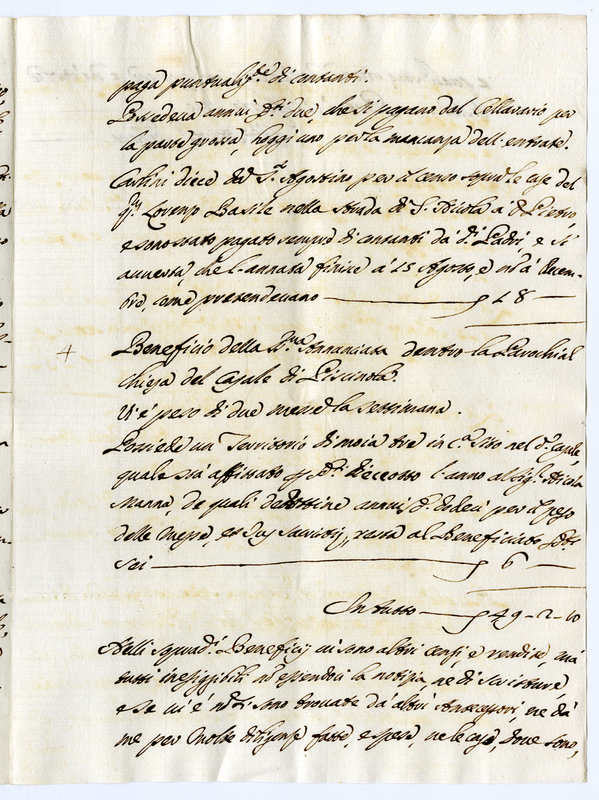 paga puntualm.te di contanti.
Possedeva annui d.ti due, che si pagano dal Cellarario per
la parte grossa, hoggi uno per la mancanza dell'entrate.
Carlini diece da S. Agostino per il censo sopra le case del
q.m Lorenzo Basile nella strada di S. Nicola à D. Pietro,
e sono stato pagato sempre di contanti da d.i Padri, e si
averta, che l'annata finisce à 15 Agosto, e nõ à Decem-
bre, come pretendevano — 18 —
4 Beneficio della SS.ma Annunciata dentro la Parochial
chiesa del Casale di Piscinola.
Vi è peso di due messe la settimana.
Possiede un Territorio di moia tre in c.a sito nel d.o Casale,
quale stà affittato d.ti dieceotto l'anno al Sig.r Nicola
Manna, de quali annui d.ti dodeci per il peso
delle Messe, et resta al Beneficiato
sei — 6 —
In tutto — 49-2-10
Nelli soprad.i Beneficij vi sono altri censi, e rendite, mà
tutti inesiggibili nõ essendovi la notizia, ne di scritture,
e se vi è nõ si sono trovate dà altri Antecessori, ne dà
me per molte diligenze fatte, e spese, ne le case, dove sono,